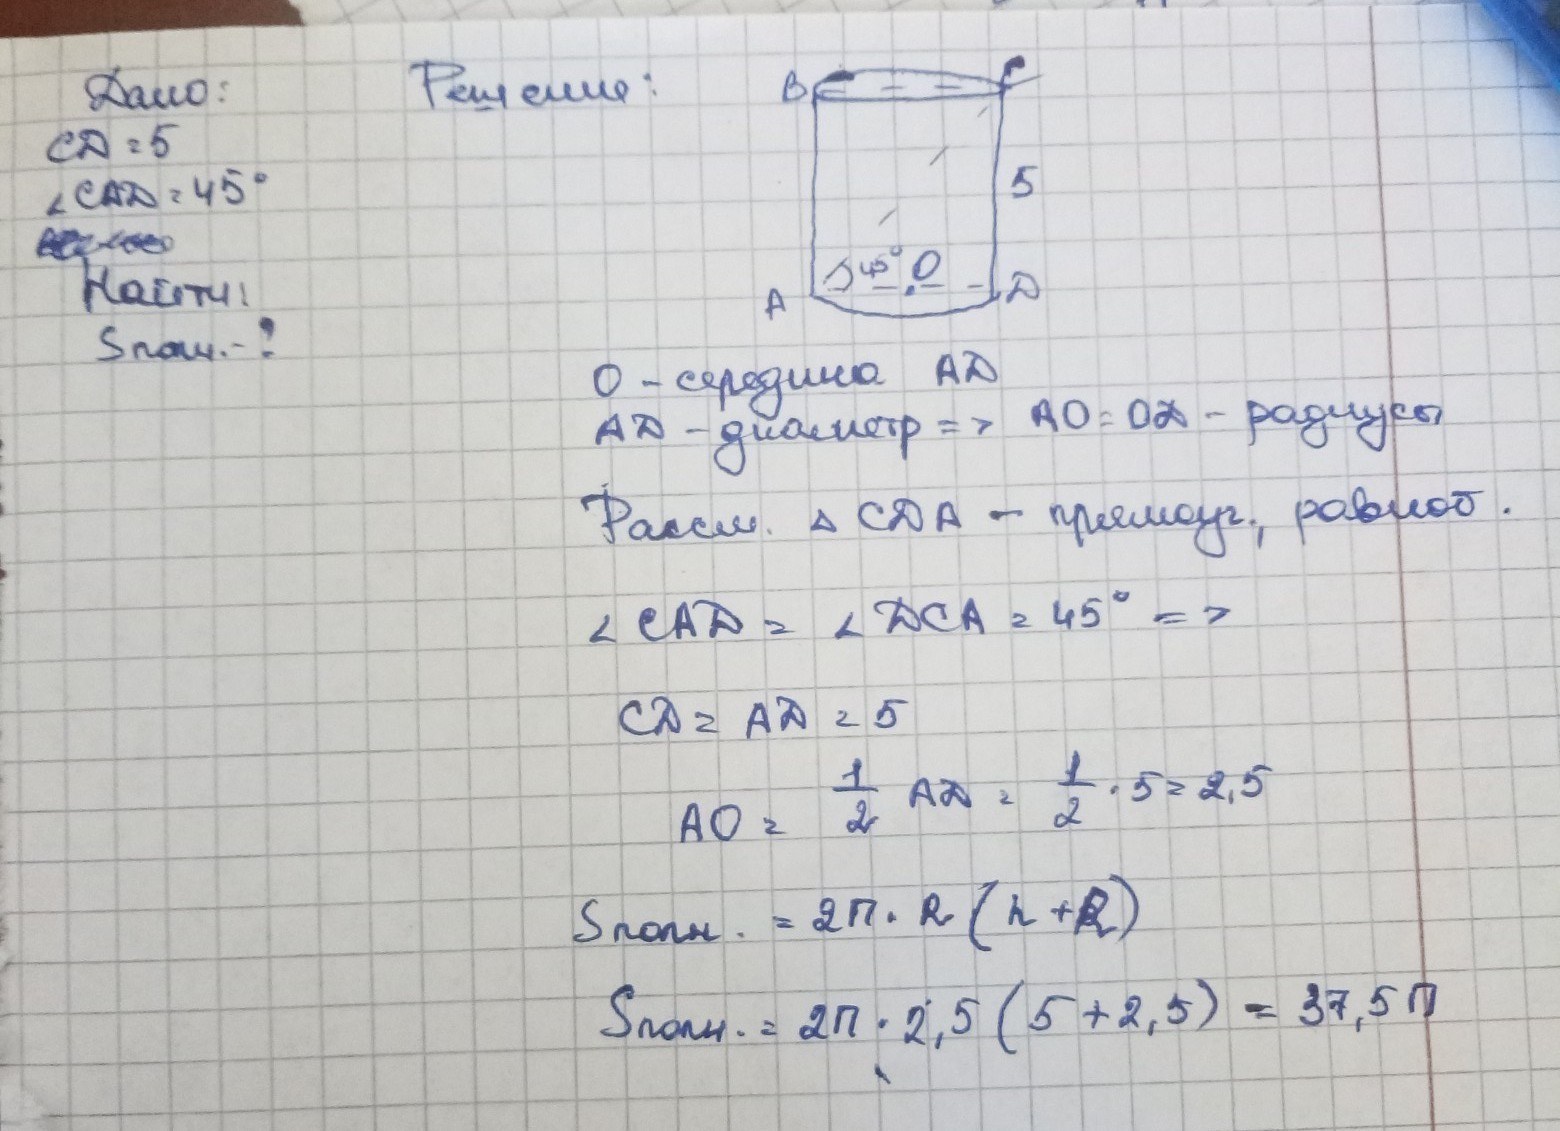 Дано:
CD = 5
∠CAD = 45°
Найти:
Sполн. - ?
Решение:
B C
5
45° O
A D
O - середина AD
AD - диаметр => AO = OD - радиусы
Рассм. △ CDA - прямоуг., равноб.
∠ CAD = ∠ DCA = 45° =>
CD = AD = 5
AO = 1/2 AD = 1/2 · 5 = 2,5
Sполн. = 2П · R (h + R)
Sполн. = 2П · 2,5 (5 + 2,5) = 37,5П